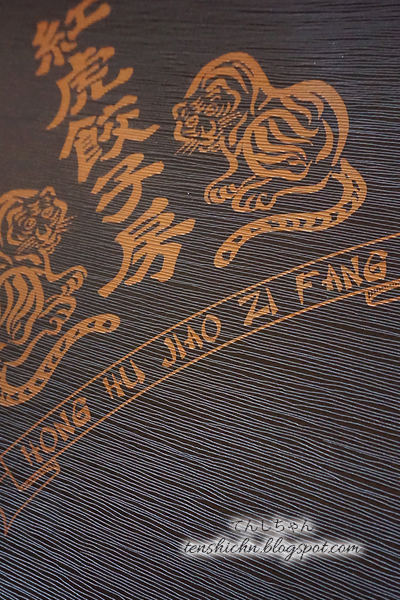 紅虎餃子房
HONG HU JIAO ZI FANG
てんしちゃん
tenshichn.blogspot.com